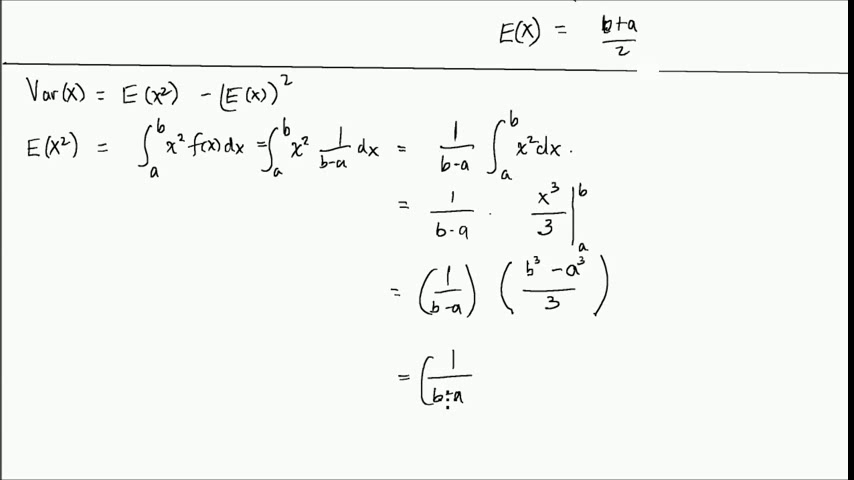 E(X) = b+a/2
Var(X) = E(X²) - (E(X))²
E(X²) = ∫ₐᵇ x² f(x)dx = ∫ₐᵇ x² 1/b-a dx = 1/b-a ∫ₐᵇ x² dx.
= 1/b-a · x³/3 |ₐᵇ
= (1/b-a) (b³-a³/3)
= (1/b-a